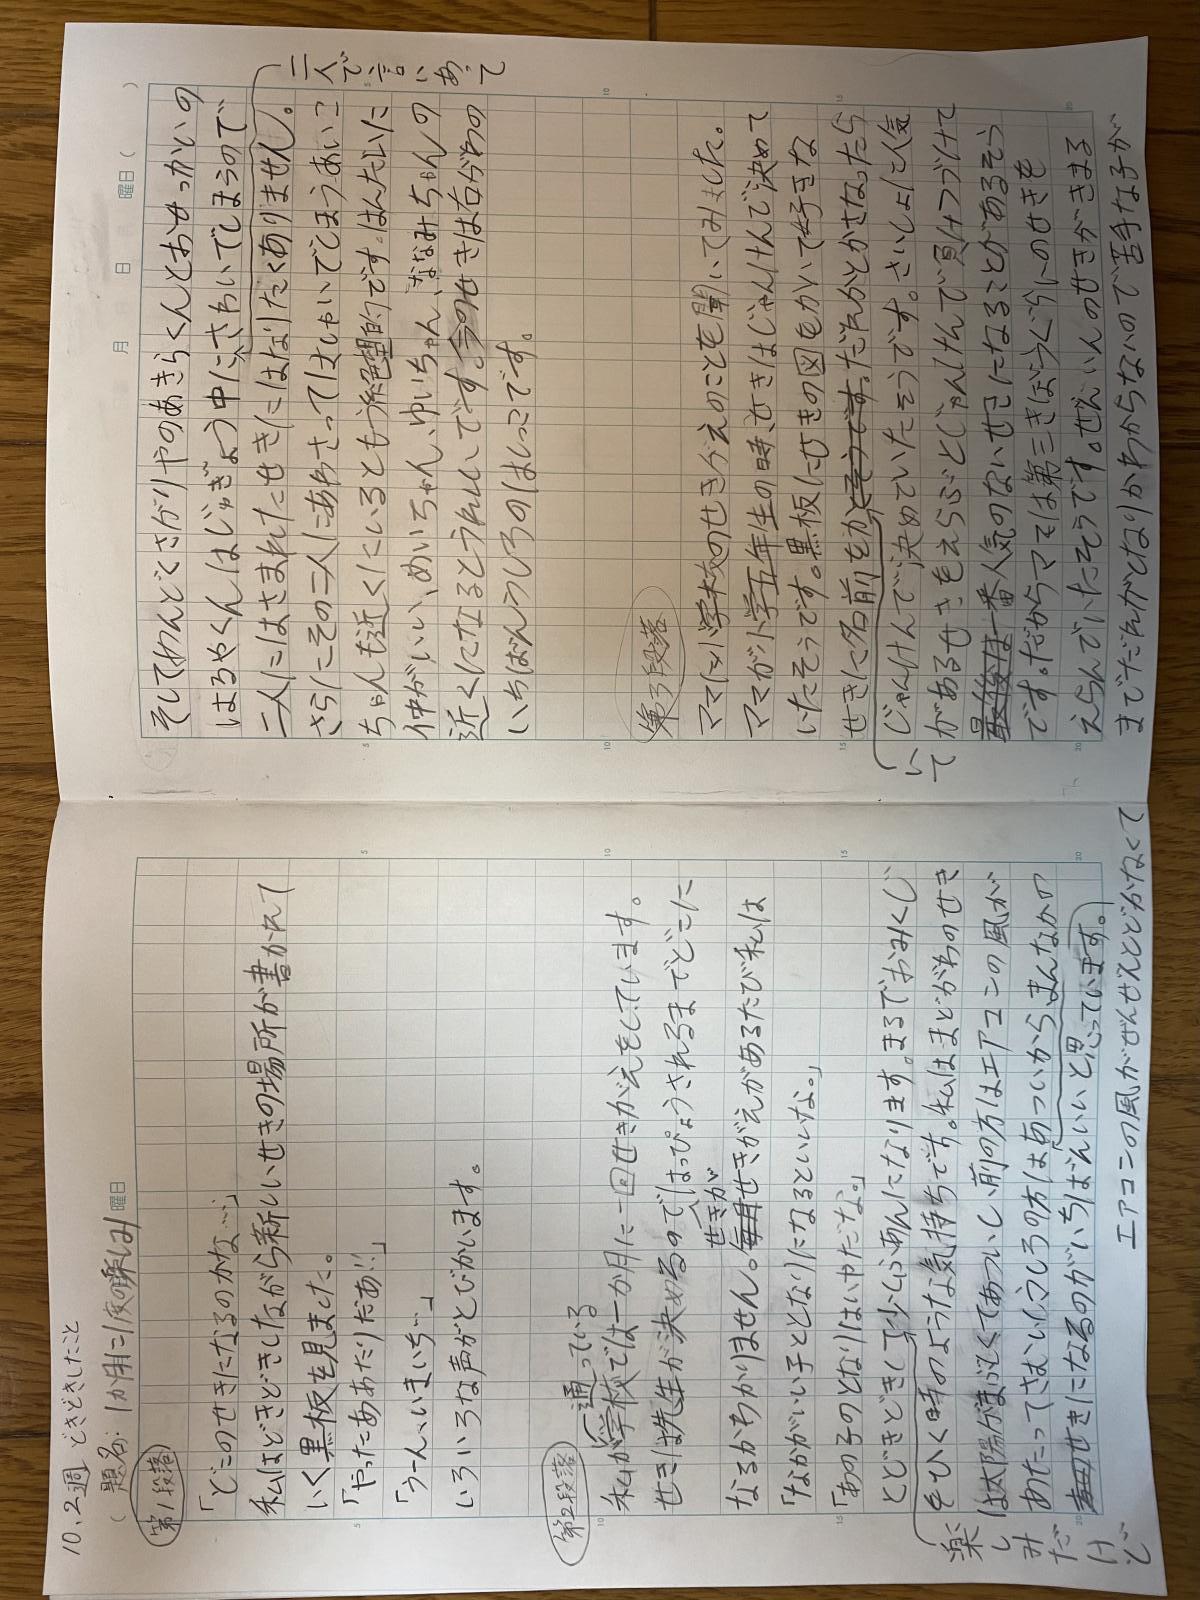 10.2週 どきどきしたこと
(題名:1か月に1度の楽しみ)曜日
第1段落
「どこのせきになるのかな…」
私はどきどきしながら新しいせきの場所が書かれて
いく黒板を見ました。
「やったああたりだあ!!」
「うーん、いまいち…」
いろいろな声がとびかいます。
第2段落
私が通っている学校では一か月に一回せきがえをしています。
せきは先生が決めるのではっぴょうされるまでどこに
なるかわかりません。毎月せきがえがあるたび私は
せきが
「なかがいい子ととなりになるといいな。」
「あの子のとなりはいやだな。」
とどきどきして少しふあんになります。まるでおみくじ
楽しみだけど
をひく時のような気持ちです。私はまどがわのせき
は太陽がまぶしくてあついし、前の方はエアコンの風が
あたってさむいし、うしろの方はあついから、まんなかの
せきになるのがいちばんいいと思っています。
エアコンの風がぜんぜんとどかなくて
月 日 曜日( )
そしてわんどくさがりやのあきらくんとおせっかいの
はるやくんはじゅぎょう中にさわいでしまうので
二人で言いあって
二人にはさまれたせきにはなりたくありません。
さらにその二人にあわさってはしゃいでしまうあいこ
ちゃんも近くにいるともう絶望的です。はんたいに
仲がいい、めいちゃん、ゆいちゃん、ななみちゃんの
近くになるとうれしいです。今のせきは右がわの
いちばんうしろのはしっこです。
第3段落
ママに小学校のせきがえのことも聞いてみました。
ママが小学五年生の時、せきはじゃんけんで決めて
いたそうです。黒板にせきの図をかいて好きな
せきに名前をかそうです。だれかとかさなったら
いて
じゃんけんで決めていたそうです。さいしょに人気
があるせきをえらぶとじゃんけんで負けつづけて
最後は一番人気のないせきになることがあるそう
です。だからママは第三きぼうぐらいのせきを
えらんでいたそうです。ぜんいんのせきがきまる
までだれがとなりかわからないので苦手な子が